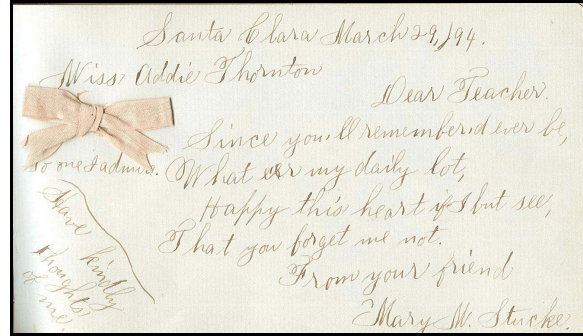 Santa Clara March 29, /94.
Miss Addie Thornton
Dear Teacher.
Since you'll remember,d ever be,
to one I admire.
What e'er my daily lot,
Happy this heart if I but see,
That you forget me not.
From your friend
Mary M. Stucke.
Have kindly
thoughts
of me.